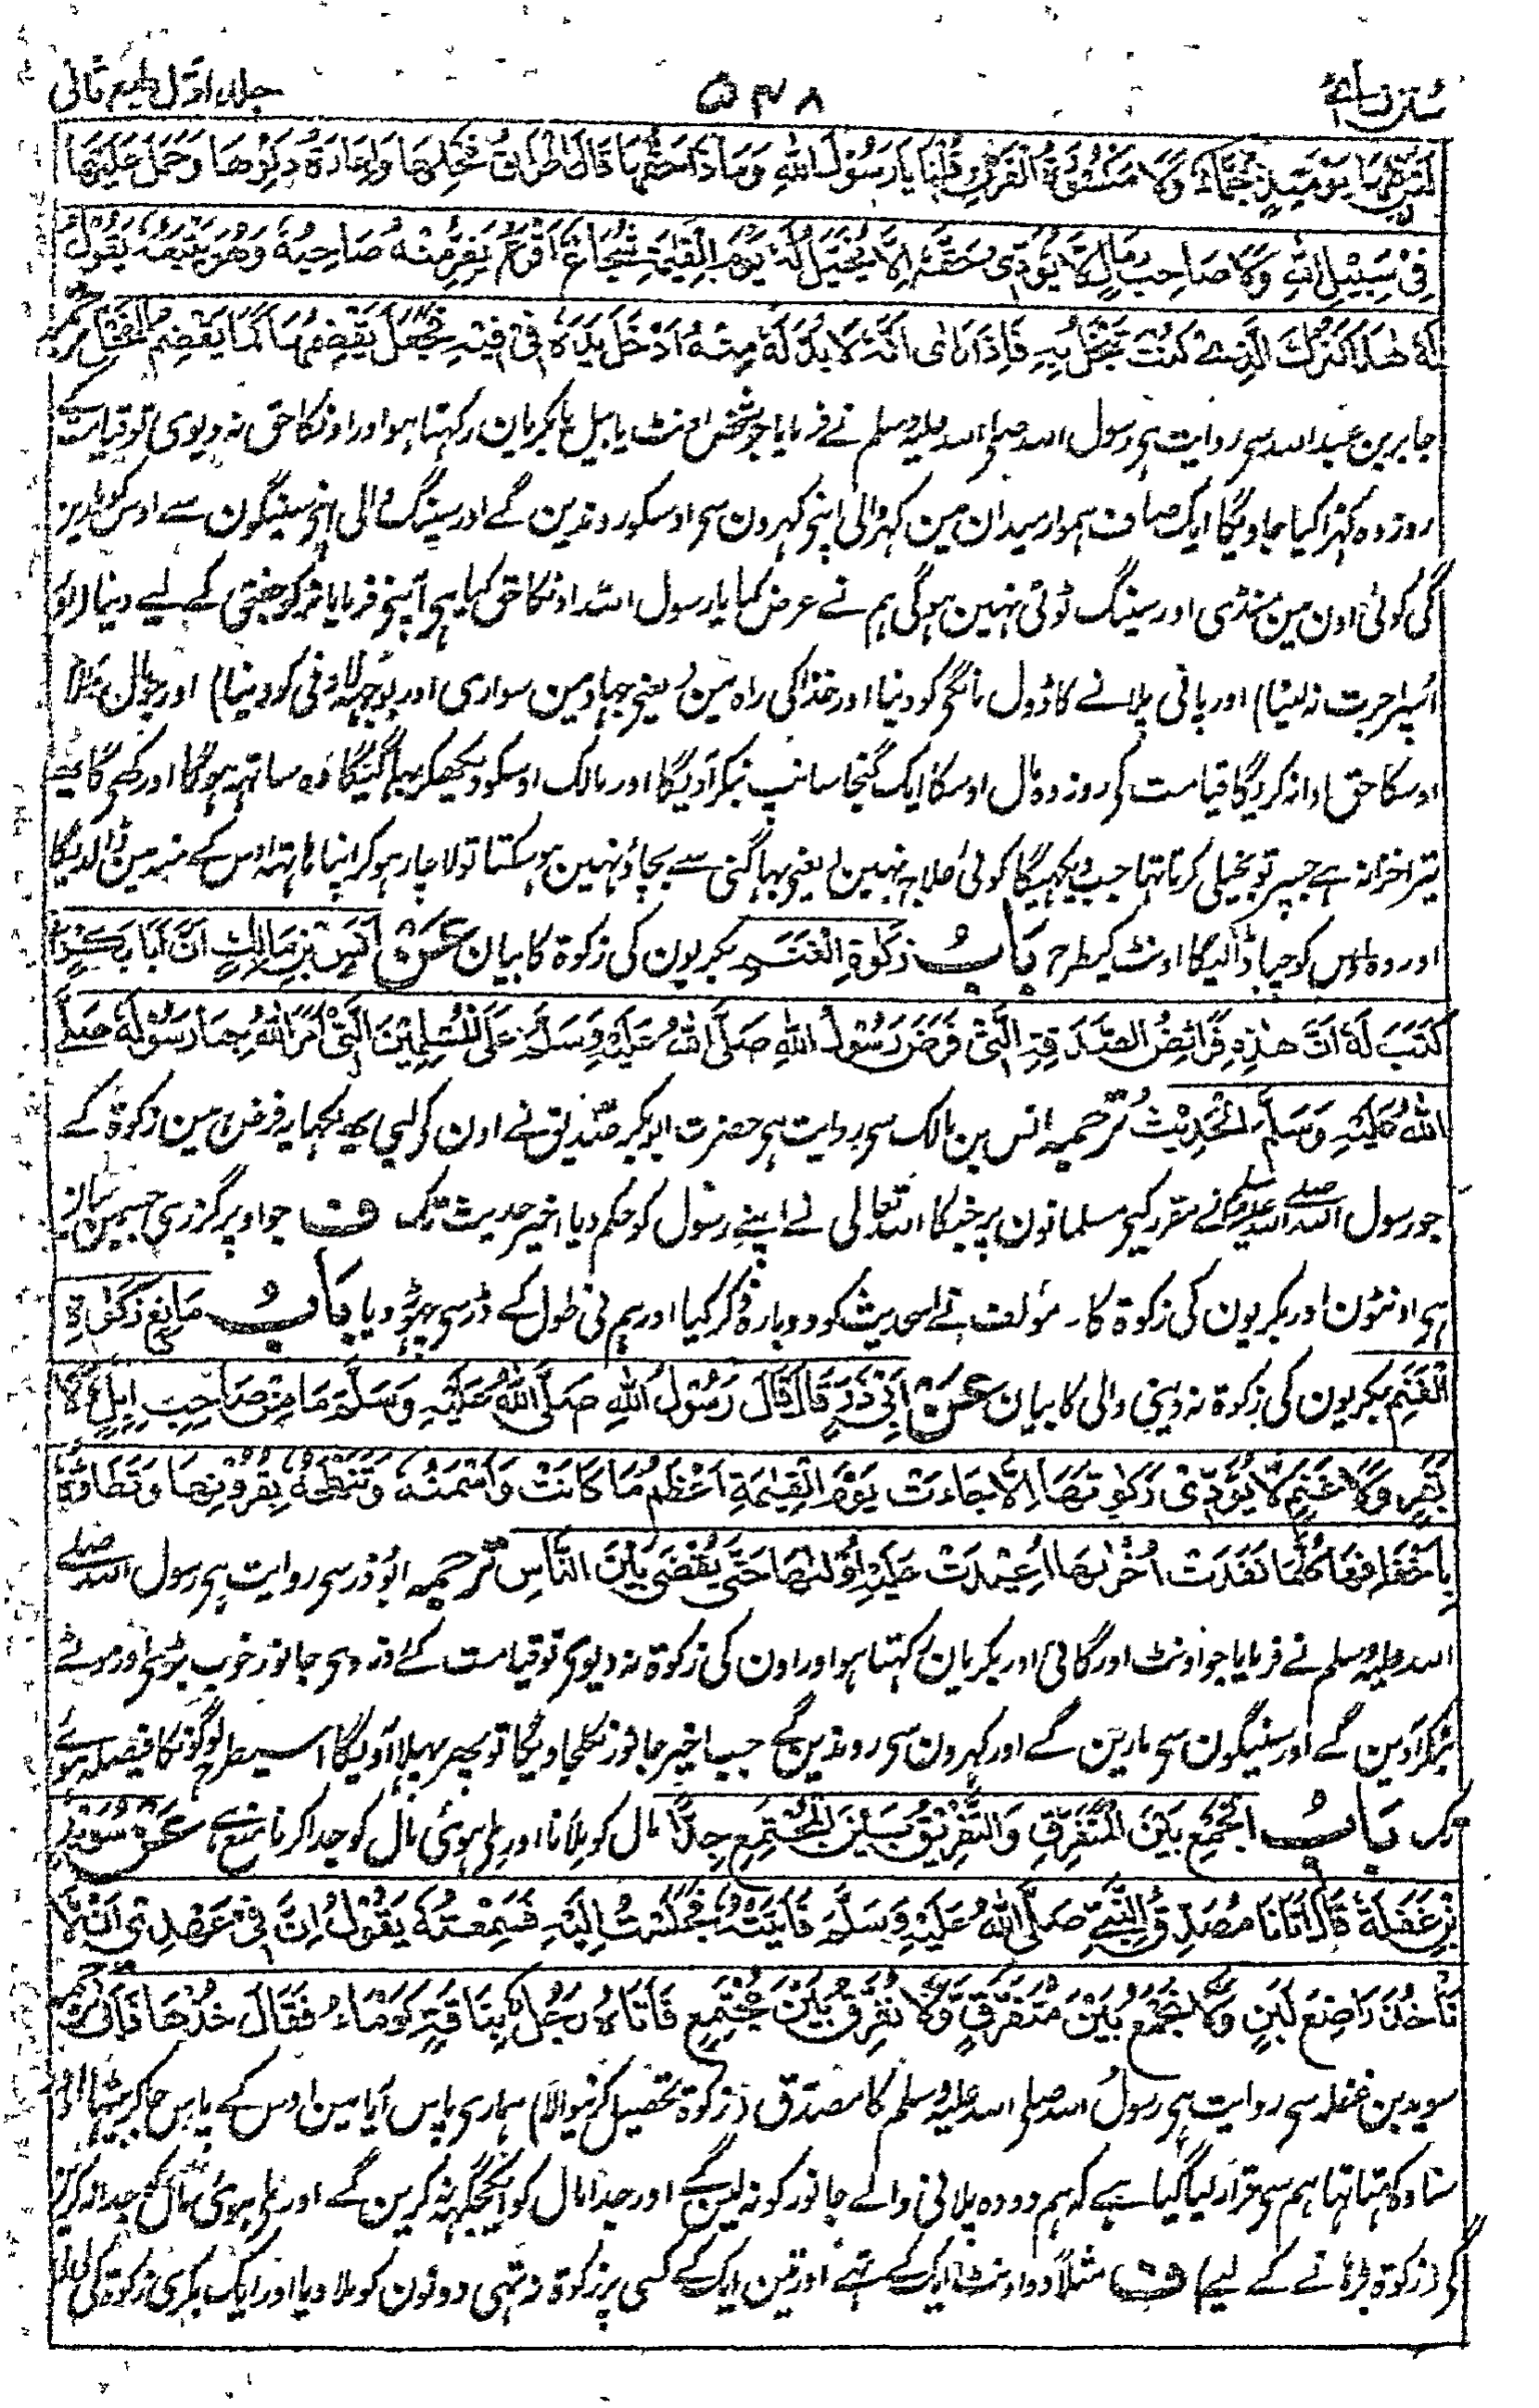 سنن نسائی ۵۴۸ جلد اوّل طبع ثانی
لَيْسَ فِيْهَا يَوْمَئِذٍ جَمَّاءُ وَلَا مَكْسُوْرَةُ الْقَرْنِ قُلْنَا يَا رَسُوْلَ اللّٰهِ وَمَا ذَا حَقُّهَا قَالَ اِطْرَاقُ فَحْلِهَا وَاِعَارَةُ دَلْوِهَا وَحَمْلٌ عَلَيْهَا
فِيْ سَبِيْلِ اللّٰهِ وَلَا صَاحِبِ مَالٍ لَا يُؤَدِّيْ حَقَّهٗ اِلَّا يُخَيَّلُ لَهٗ يَوْمَ الْقِيٰمَةِ شُجَاعٌ اَقْرَعُ يَفِرُّ مِنْهُ صَاحِبُهٗ وَهُوَ يَتْبَعُهٗ يَقُوْلُ
لَهٗ هٰذَا كَنْزُكَ الَّذِيْ كُنْتَ تَبْخَلُ بِهٖ فَاِذَا رَاٰى اَنَّهٗ لَا بُدَّ لَهٗ مِنْهُ اَدْخَلَ يَدَهٗ فِيْ فِيْهِ فَجَعَلَ يَقْضَمُهَا كَمَا يَقْضَمُ الْفَحْلُ ترجمہ
جابر بن عبد اللہ سے روایت ہے رسول اللہ صلی اللہ علیہ وسلم نے فرمایا جو شخص اونٹ یا بیل یا بکریان رکہتا ہو اور اونکا حق نہ دیوی تو قیامت کے
روز وہ کہڑا کیا جاویگا ایک صاف ہموار میدان مین کہر والی اپنی کہرون سے اوسکو روندین گے اور سینگ والی اپنی سینگون سے اوس کو مارین
گی کوئی اون مین منڈی اور سینگ ٹوٹی نہین ہوگی ہم نے عرض کیا یا رسول اللہ اونکا حق کیا ہے آپنے فرمایا نر کو جفتی کے لیے دینا (اور
اسپر اجرت نہ لینا) اور پانی پلانے کا ڈول مانگے کو دینا اور خدا کی راہ مین (یعنے جہاد مین سواری اور بوجہہ لادنی کو دینا) اور جو مال والا
اوسکا حق ادا نہ کریگا قیامت کی روز وہ مال اوسکا ایک گنجا سانپ بنکر آویگا اور مالک اوسکو دیکھکر بہاگیگا وہ ساتہہ ہوگا اور کہے گا یہ
تیرا خزانہ ہے جسپر تو بخیلی کرتا تہا جب دیکہیگا کوئی علاج نہین (یعنے بہاگنی سے بچاؤ نہین ہو سکتا) تو لاچار ہو کر اپنا ہاتہہ اوس کے منہ مین ڈالدیگا
اور وہ اوس کو چبا ڈالیگا اونٹ کیطرح بَابُ زَكٰوةِ الْغَنَمِ بکریون کی زکوۃ کا بیان عَنْ اَنَسِ بْنِ مَالِكٍ اَنَّ اَبَا بَكْرٍ
كَتَبَ لَهٗ اَنَّ هٰذِهٖ فَرَائِضُ الصَّدَقَةِ الَّتِيْ فَرَضَ رَسُوْلُ اللّٰهِ صَلَّى اللّٰهُ عَلَيْهِ وَسَلَّمَ عَلَى الْمُسْلِمِيْنَ الَّتِيْ اَمَرَ اللّٰهُ بِهَا رَسُوْلَهٗ صَلَّى
اللّٰهُ عَلَيْهِ وَسَلَّمَ الْحَدِيْثَ ترجمہ انس بن مالک سے روایت ہے حضرت ابوبکر صدیق نے اون کی لیے یہ لکہا یہ فرض ہین زکوۃ کے
جو رسول اللہ صلے اللہ علیہ وسلم نے مقرر کیے مسلمانون پر جنکا اللہ تعالی نے اپنے رسول کو حکم دیا اخیر حدیث تک ف جو اوپر گزری جسمین بیان
ہے اونٹون اور بکریون کی زکوۃ کا ۔ مؤلف نے اس حدیث کو دوبارہ ذکر کیا اور ہم نے طول کے ڈر سے چھوڑ دیا بَابُ مَانِعِ زَكٰوةِ
الْغَنَمِ بکریون کی زکوۃ نہ دینی والی کا بیان عَنْ اَبِيْ ذَرٍّ قَالَ قَالَ رَسُوْلُ اللّٰهِ صَلَّى اللّٰهُ عَلَيْهِ وَسَلَّمَ مَا مِنْ صَاحِبِ اِبِلٍ وَلَا
بَقَرٍ وَلَا غَنَمٍ لَا يُؤَدِّيْ زَكٰوتَهَا اِلَّا جَاءَتْ يَوْمَ الْقِيٰمَةِ اَعْظَمَ مَا كَانَتْ وَاَسْمَنَهٗ وَتَنْطَحُهٗ بِقُرُوْنِهَا وَتَطَاُهٗ
بِاَخْفَافِهَا كُلَّمَا نَفَدَتْ اُخْرٰىهَا اُعِيْدَتْ عَلَيْهِ اُوْلٰىهَا حَتّٰى يُقْضٰى بَيْنَ النَّاسِ ترجمہ ابو ذر سے روایت ہے رسول اللہ صلے
اللہ علیہ وسلم نے فرمایا جو اونٹ اور گائی اور بکریان رکہتا ہو اور اون کی زکوۃ نہ دیوی تو قیامت کے دن وہی جانور خوب بڑی اور موٹے
بنکر آوین گے اور سینگون سے مارین گے اور کہرون سے روندین گے جب اخیر جانور نکلجاویگا تو پھر پہلا آویگا اسیطرح لوگونکا فیصلہ ہوئے
تک بَابُ الْجَمْعِ بَيْنَ الْمُتَفَرِّقِ وَالتَّفْرِيْقِ بَيْنَ الْمُجْتَمِعِ جدا مال کو ملانا اور ملی ہوئی مال کو جدا کرنا منع ہے عَنْ سُوَيْدِ
بْنِ غَفَلَةَ قَالَ اَتَانَا مُصَدِّقُ النَّبِيِّ صَلَّى اللّٰهُ عَلَيْهِ وَسَلَّمَ فَاَتَيْتُهٗ فَجَلَسْتُ اِلَيْهِ فَسَمِعْتُهٗ يَقُوْلُ اِنَّ فِيْ عَهْدِيْ اَنْ لَا
نَاْخُذَ رَاضِعَ لَبَنٍ وَلَا نَجْمَعَ بَيْنَ مُتَفَرِّقٍ وَلَا نُفَرِّقَ بَيْنَ مُجْتَمِعٍ فَاَتَاهُ رَجُلٌ بِنَاقَةٍ كَوْمَاءَ فَقَالَ خُذْهَا فَاَبٰى ترجمہ
سوید بن غفلہ سے روایت ہے رسول اللہ صلی اللہ علیہ وسلم کا مصدق (زکوۃ تحصیل کرنیوالا) ہماری پاس آیا مین اوس کے پاس جا کر بیٹھا اور
سنا وہ کہتا تہا ہم سے اقرار لیا گیا ہے کہ ہم دودہ پلانی والے جانور کو نہ لین گے اور جدا مال کو ایکجگہہ نہ کرین گے اور ملی ہوئی مال کو جدا نہ کرین
گی (زکوۃ بڑہانے کے لیے) ف مثلاً دو اونٹ ایک کے تہے اور تین ایک کے کسی پر زکوۃ نہ تہی دونون کو ملا دیا اور ایک بکری زکوۃ کی